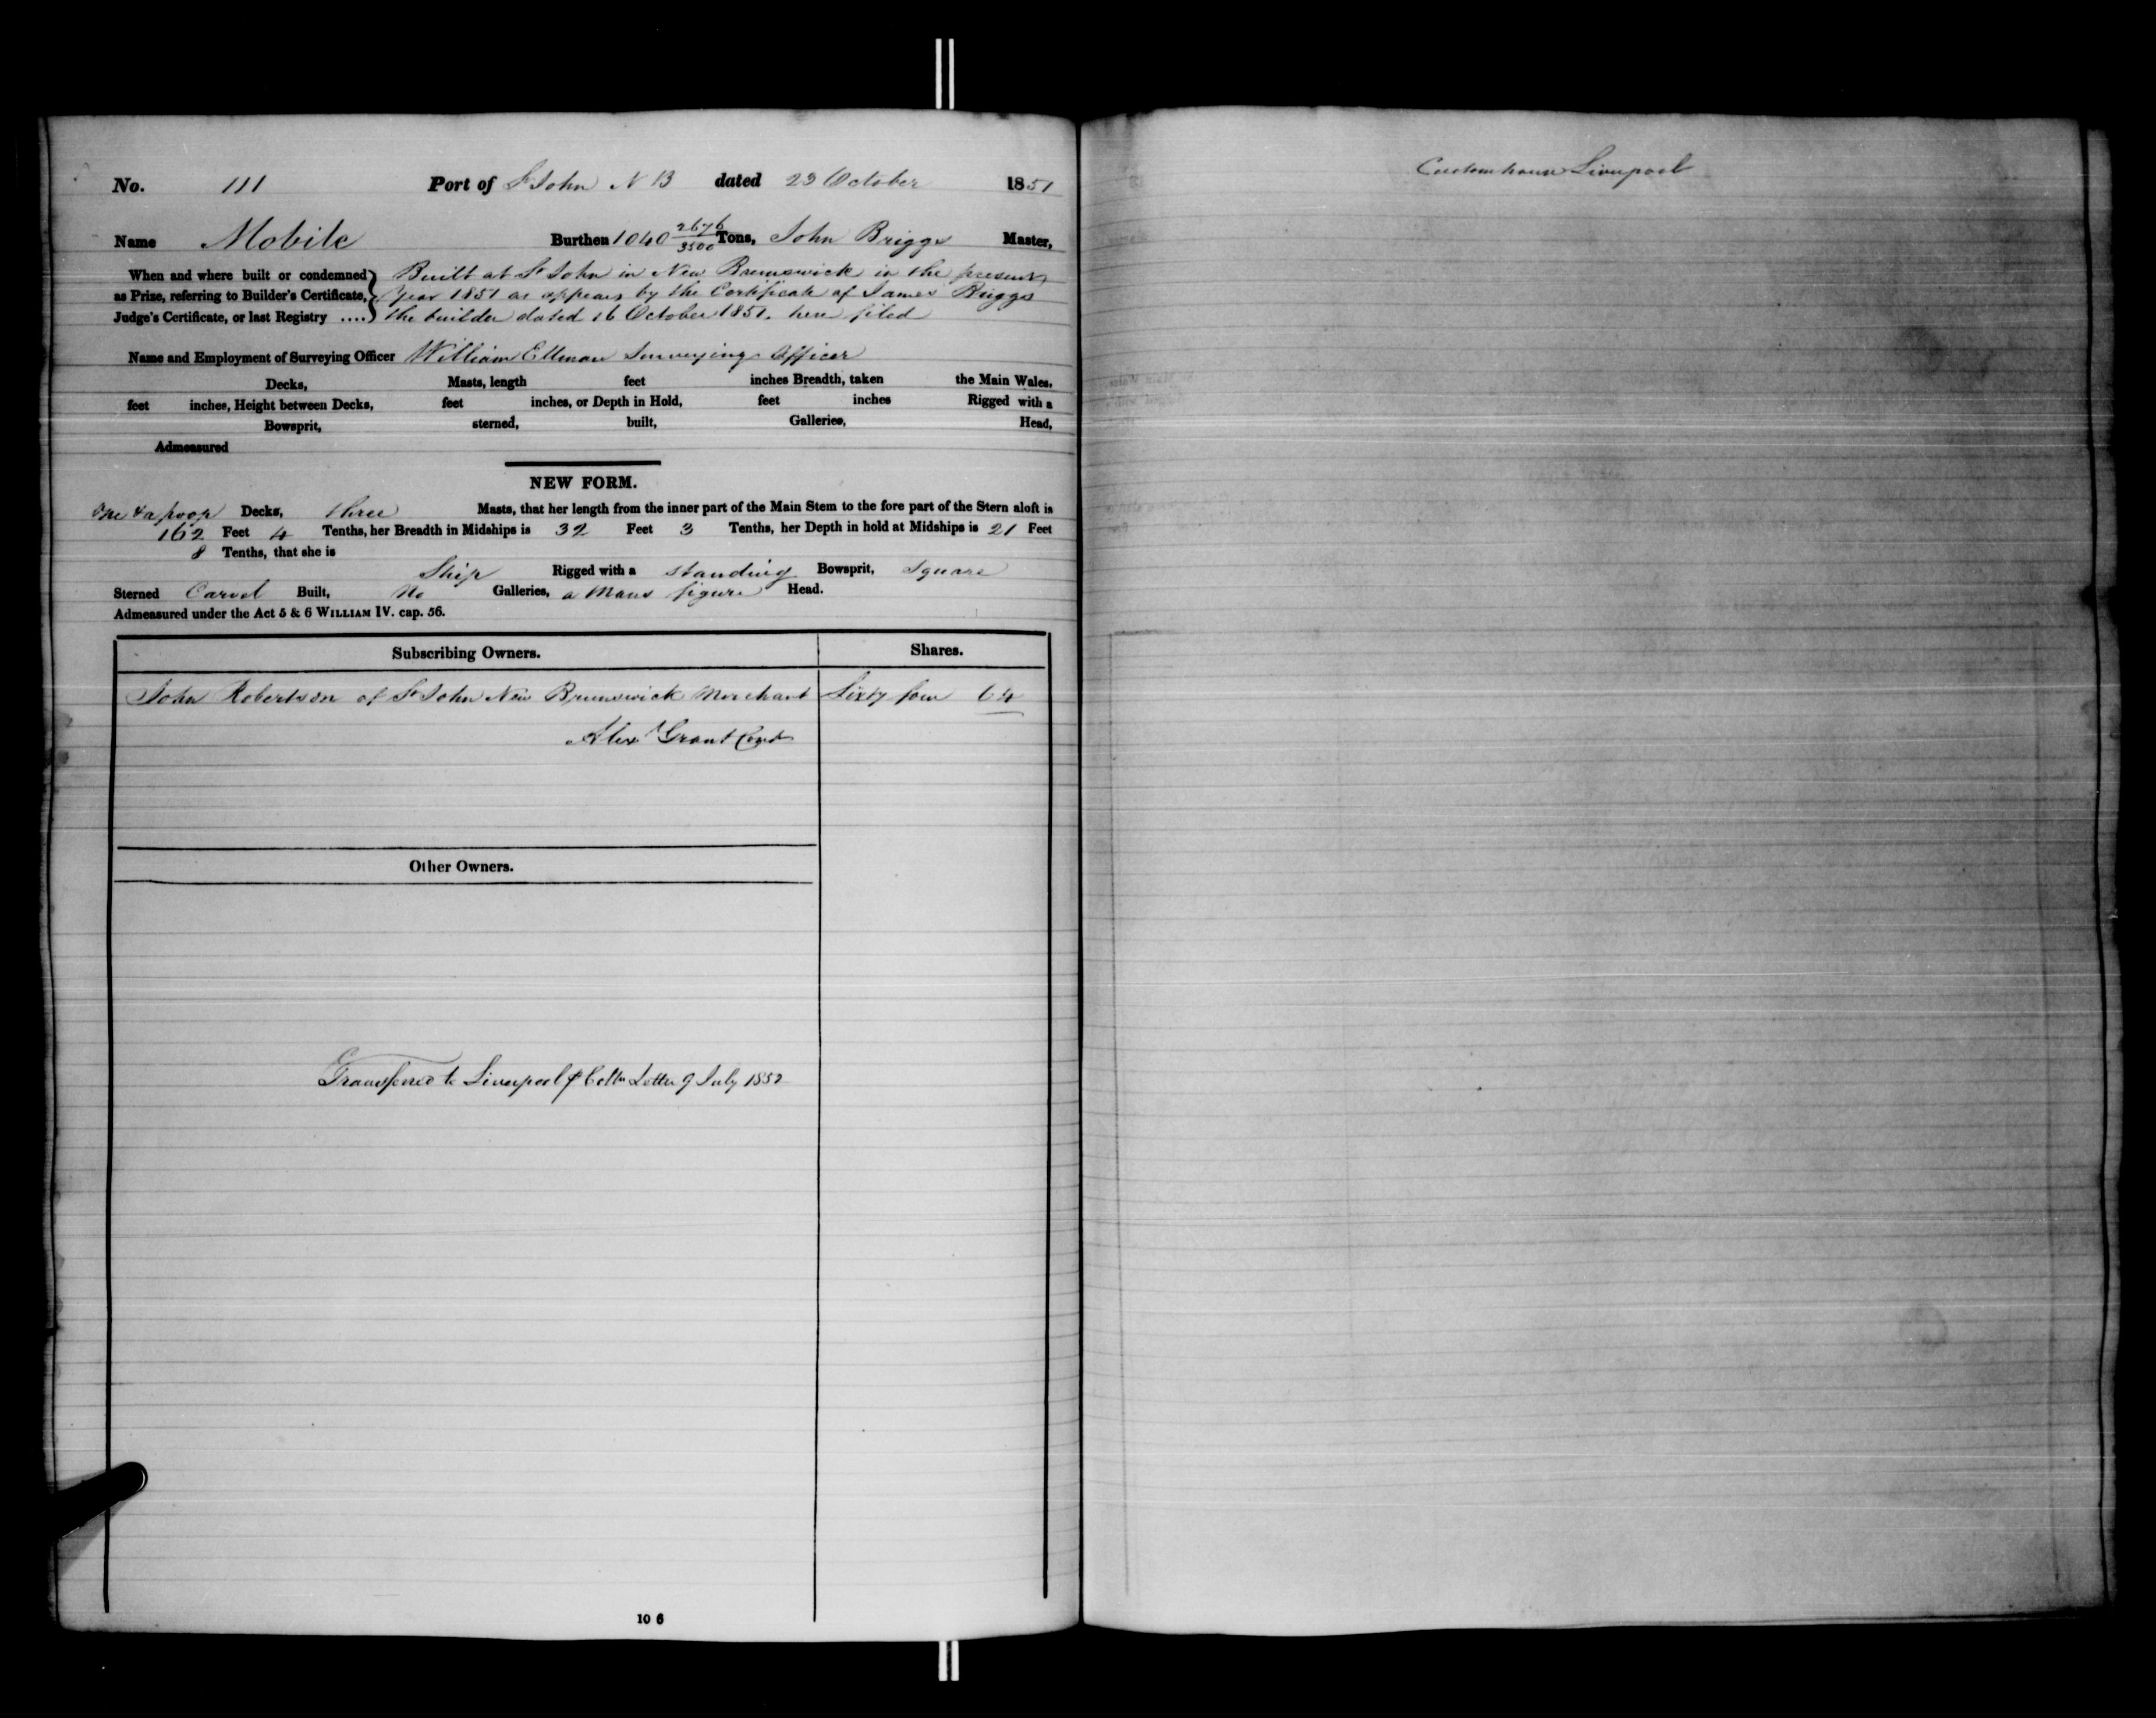 No. 111 Port of St John N B dated 23 October 1851
Name Mobile Burthen 1040 2676/3500 Tons, John Briggs Master,
When and where built or condemned as Prize, referring to Builder's Certificate, Judge's Certificate, or last Registry ....} Built at St John in New Brunswick in the present
Year 1851 as appears by the Certificate of James Briggs
the builder dated 16 October 1851. here filed
Name and Employment of Surveying Officer William Ellman Surveying Officer
Decks, Masts, length feet inches Breadth, taken the Main Wales,
feet inches, Height between Decks, feet inches, or Depth in Hold, feet inches Rigged with a
Bowsprit, sterned, built, Galleries, Head,
Admeasured
NEW FORM.
One & a poop Decks, three Masts, that her length from the inner part of the Main Stem to the fore part of the Stern aloft is
162 Feet 4 Tenths, her Breadth in Midships is 32 Feet 3 Tenths, her Depth in hold at Midships is 21 Feet
8 Tenths, that she is
Ship Rigged with a standing Bowsprit, Square
Sterned Carvel Built, No Galleries, a Mans figure Head.
Admeasured under the Act 5 & 6 WILLIAM IV. cap. 56.
Subscribing Owners. Shares.
John Robertson of St John New Brunswick Merchant Sixty four 64
Alexr Grant
Other Owners.
Transferred to Liverpool Letter 9 July 1852
10 6
Customhouse Liverpool